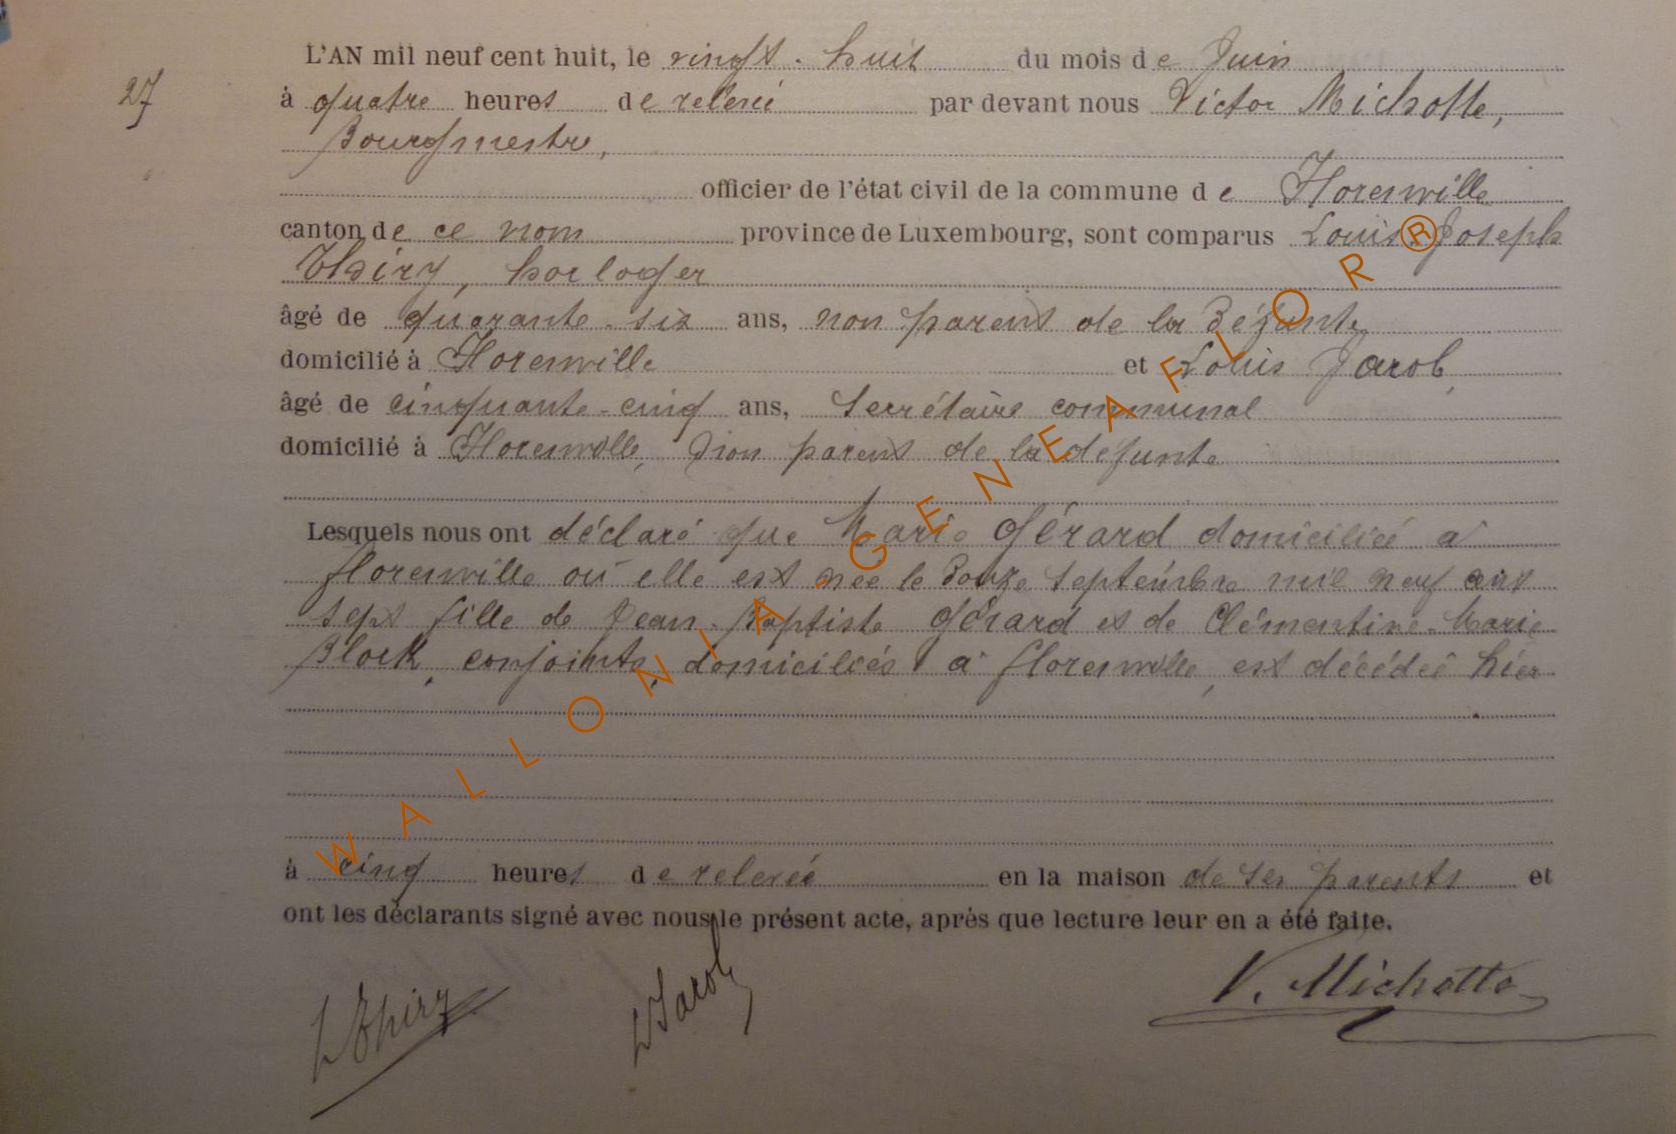 L'AN mil neuf cent huit, le vingt-huit du mois de Juin
27
à quatre heures de relevée par devant nous Victor Michotte,
Bourgmestre,
officier de l'état civil de la commune de Florenville
canton de ce nom province de Luxembourg, sont comparus Louis Joseph
Thiry, horloger
âgé de quarante-six ans, non parent de la Défunte,
domicilié à Florenville et Louis Jacob,
âgé de cinquante-cinq ans, Secrétaire communal
domicilié à Florenville, non parent de la défunte
Lesquels nous ont déclaré que Marie Gérard domiciliée à
florenville où elle est née le Douze Septembre mil neuf cent
sept fille de Jean-Baptiste Gérard et de Clémentine-Marie
Block, conjoints, domiciliés à florenville, est décédée hier
à cinq heures de relevée en la maison de ses parents et
ont les déclarants signé avec nous le présent acte, après que lecture leur en a été faite.
L Thiry L Jacob V. Michotte
WALLONIA-GENEAFLOR®